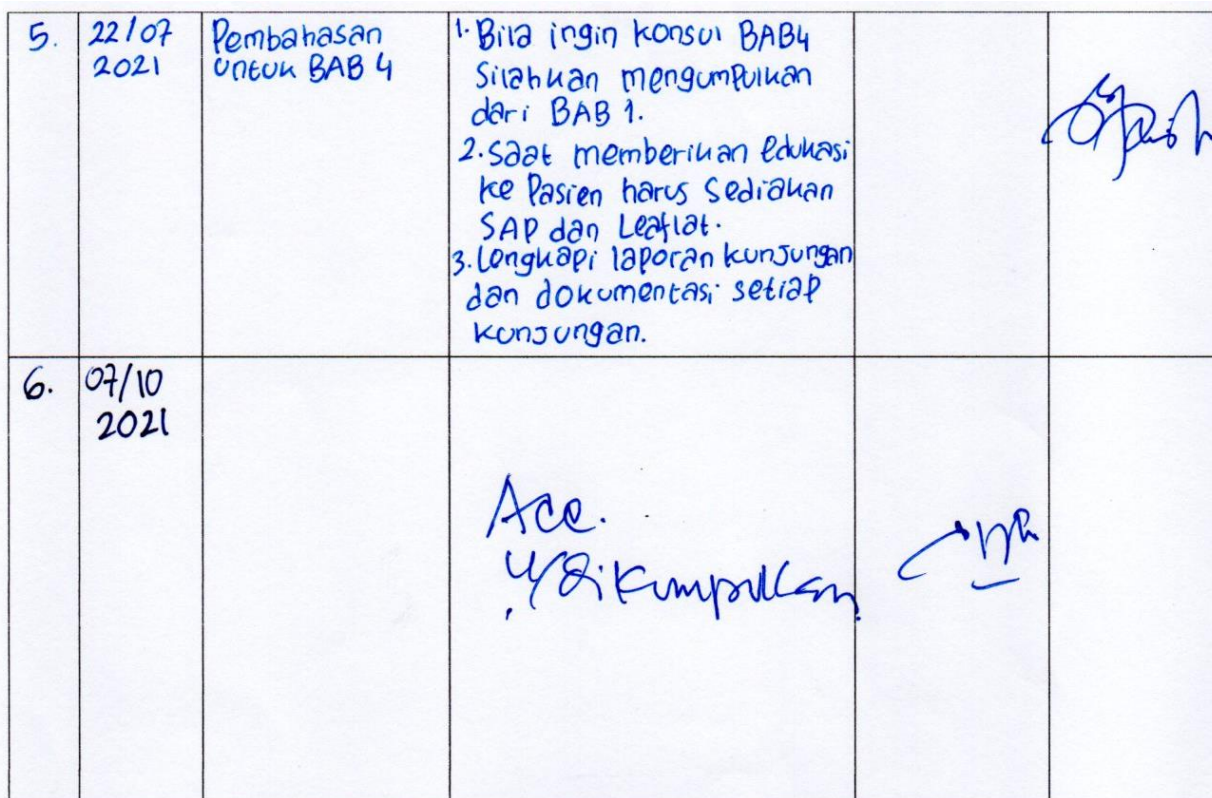 5.
22/07
2021
Pembahasan
untuk BAB 4
1. Bila ingin konsul BAB4
Silahkan mengumpulkan
dari BAB 1.
2. Saat memberikan edukasi
ke Pasien harus Sediakan
SAP dan Leaflat.
3. Lengkapi laporan kunjungan
dan dokumentasi setiap
kunjungan.
6.
07/10
2021
Acc.
u/ dikumpulkan